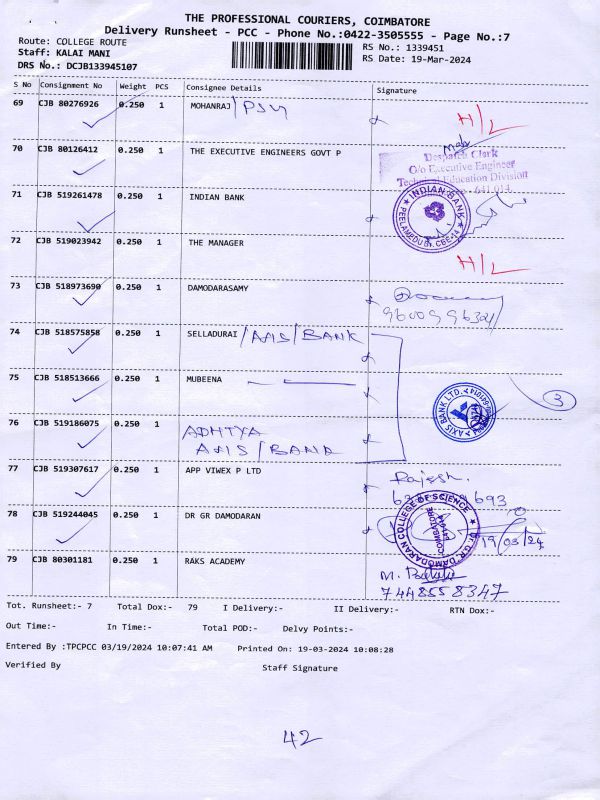 THE PROFESSIONAL COURIERS, COIMBATORE
Delivery Runsheet - PCC - Phone No.:0422-3505555 - Page No.:7
Route: COLLEGE ROUTE
RS No.: 1339451
Staff: KALAI MANI
RS Date: 19-Mar-2024
DRS No.: DCJB133945107
S No Consignment No Weight PCS Consignee Details Signature
69 CJB 80276926 0.250 1 MOHANRAJ H/L
70 CJB 80126412 0.250 1 THE EXECUTIVE ENGINEERS GOVT P
Despatch Clerk
O/o Executive Engineer
Technical Education Division
641 014
71 CJB 519261478 0.250 1 INDIAN BANK
INDIAN BANK
PEELAMEDU Br. CBE-14
72 CJB 519023942 0.250 1 THE MANAGER H/L
73 CJB 518973690 0.250 1 DAMODARASAMY
74 CJB 518575858 0.250 1 SELLADURAI / AXIS / BANK
75 CJB 518513666 0.250 1 MUBEENA
AXIS BANK LTD.
3
76 CJB 519186075 0.250 1 ADHTYA
AXIS / BANK
77 CJB 519307617 0.250 1 APP VIWEX P LTD Rajesh.
78 CJB 519244045 0.250 1 DR GR DAMODARAN
Dr. G.R. DAMODARAN COLLEGE OF SCIENCE
COIMBATORE
641 014
19/03/24
79 CJB 80301181 0.250 1 RAKS ACADEMY
7448558347
Tot. Runsheet:- 7 Total Dox:- 79 I Delivery:- II Delivery:- RTN Dox:-
Out Time:- In Time:- Total POD:- Delvy Points:-
Entered By :TPCPCC 03/19/2024 10:07:41 AM Printed On: 19-03-2024 10:08:28
Verified By Staff Signature
42